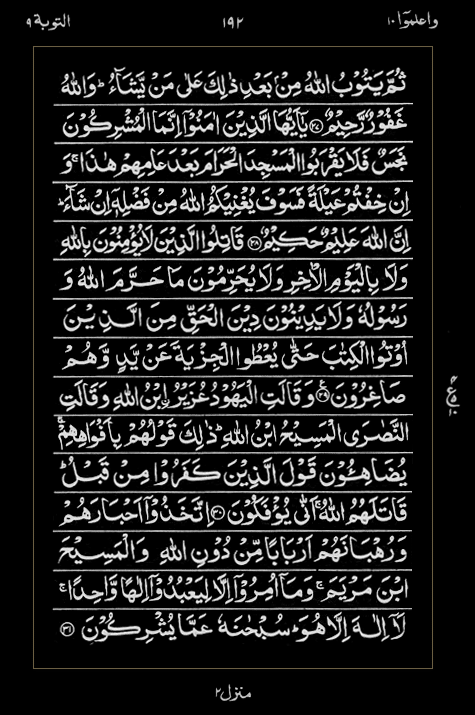 واعلموا ١٠
١٩٢
التوبة ٩
ثُمَّ يَتُوْبُ اللّٰهُ مِنْۢ بَعْدِ ذٰلِكَ عَلٰى مَنْ يَّشَآءُ ؕ وَاللّٰهُ
غَفُوْرٌ رَّحِيْمٌ ﴿٢٧﴾ يٰۤاَيُّهَا الَّذِيْنَ اٰمَنُوْۤا اِنَّمَا الْمُشْرِكُوْنَ
نَجَسٌ فَلَا يَقْرَبُوا الْمَسْجِدَ الْحَرَامَ بَعْدَ عَامِهِمْ هٰذَا ۚ وَ
اِنْ خِفْتُمْ عَيْلَةً فَسَوْفَ يُغْنِيْكُمُ اللّٰهُ مِنْ فَضْلِهٖۤ اِنْ شَآءَ ؕ
اِنَّ اللّٰهَ عَلِيْمٌ حَكِيْمٌ ﴿٢٨﴾ قَاتِلُوا الَّذِيْنَ لَا يُؤْمِنُوْنَ بِاللّٰهِ
وَلَا بِالْيَوْمِ الْاٰخِرِ وَلَا يُحَرِّمُوْنَ مَا حَرَّمَ اللّٰهُ وَ
رَسُوْلُهٗ وَلَا يَدِيْنُوْنَ دِيْنَ الْحَقِّ مِنَ الَّذِيْنَ
اُوْتُوا الْكِتٰبَ حَتّٰى يُعْطُوا الْجِزْيَةَ عَنْ يَّدٍ وَّهُمْ
صَاغِرُوْنَ ﴿٢٩﴾ وَقَالَتِ الْيَهُوْدُ عُزَيْرُ ۨابْنُ اللّٰهِ وَقَالَتِ
النَّصٰرَى الْمَسِيْحُ ابْنُ اللّٰهِ ؕ ذٰلِكَ قَوْلُهُمْ بِاَفْوَاهِهِمْ ۚ
يُضَاهِـُٔوْنَ قَوْلَ الَّذِيْنَ كَفَرُوْا مِنْ قَبْلُ ؕ
قَاتَلَهُمُ اللّٰهُ ۚ اَنّٰى يُؤْفَكُوْنَ ﴿٣٠﴾ اِتَّخَذُوْۤا اَحْبَارَهُمْ
وَرُهْبَانَهُمْ اَرْبَابًا مِّنْ دُوْنِ اللّٰهِ وَالْمَسِيْحَ
ابْنَ مَرْيَمَ ۚ وَمَاۤ اُمِرُوْۤا اِلَّا لِيَعْبُدُوْۤا اِلٰهًا وَّاحِدًا ۚ
لَاۤ اِلٰهَ اِلَّا هُوَ ؕ سُبْحٰنَهٗ عَمَّا يُشْرِكُوْنَ ﴿٣١﴾
منزل ٢